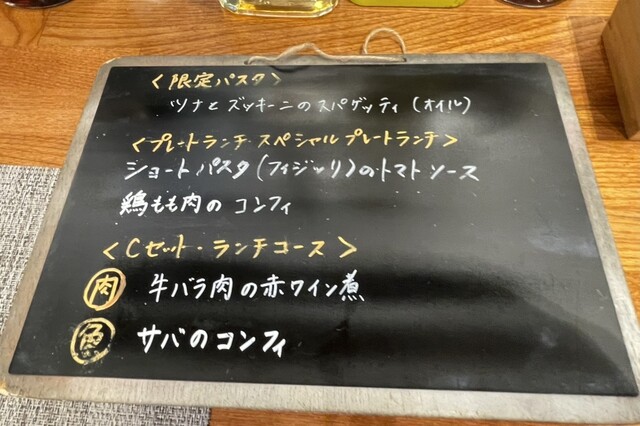 <限定パスタ>
ツナとズッキーニのスパゲッティ(オイル)
<プレートランチ スペシャルプレートランチ>
ショートパスタ(フィジッリ)のトマトソース
鶏もも肉のコンフィ
<Cセット・ランチコース>
肉 牛バラ肉の赤ワイン煮
魚 サバのコンフィ